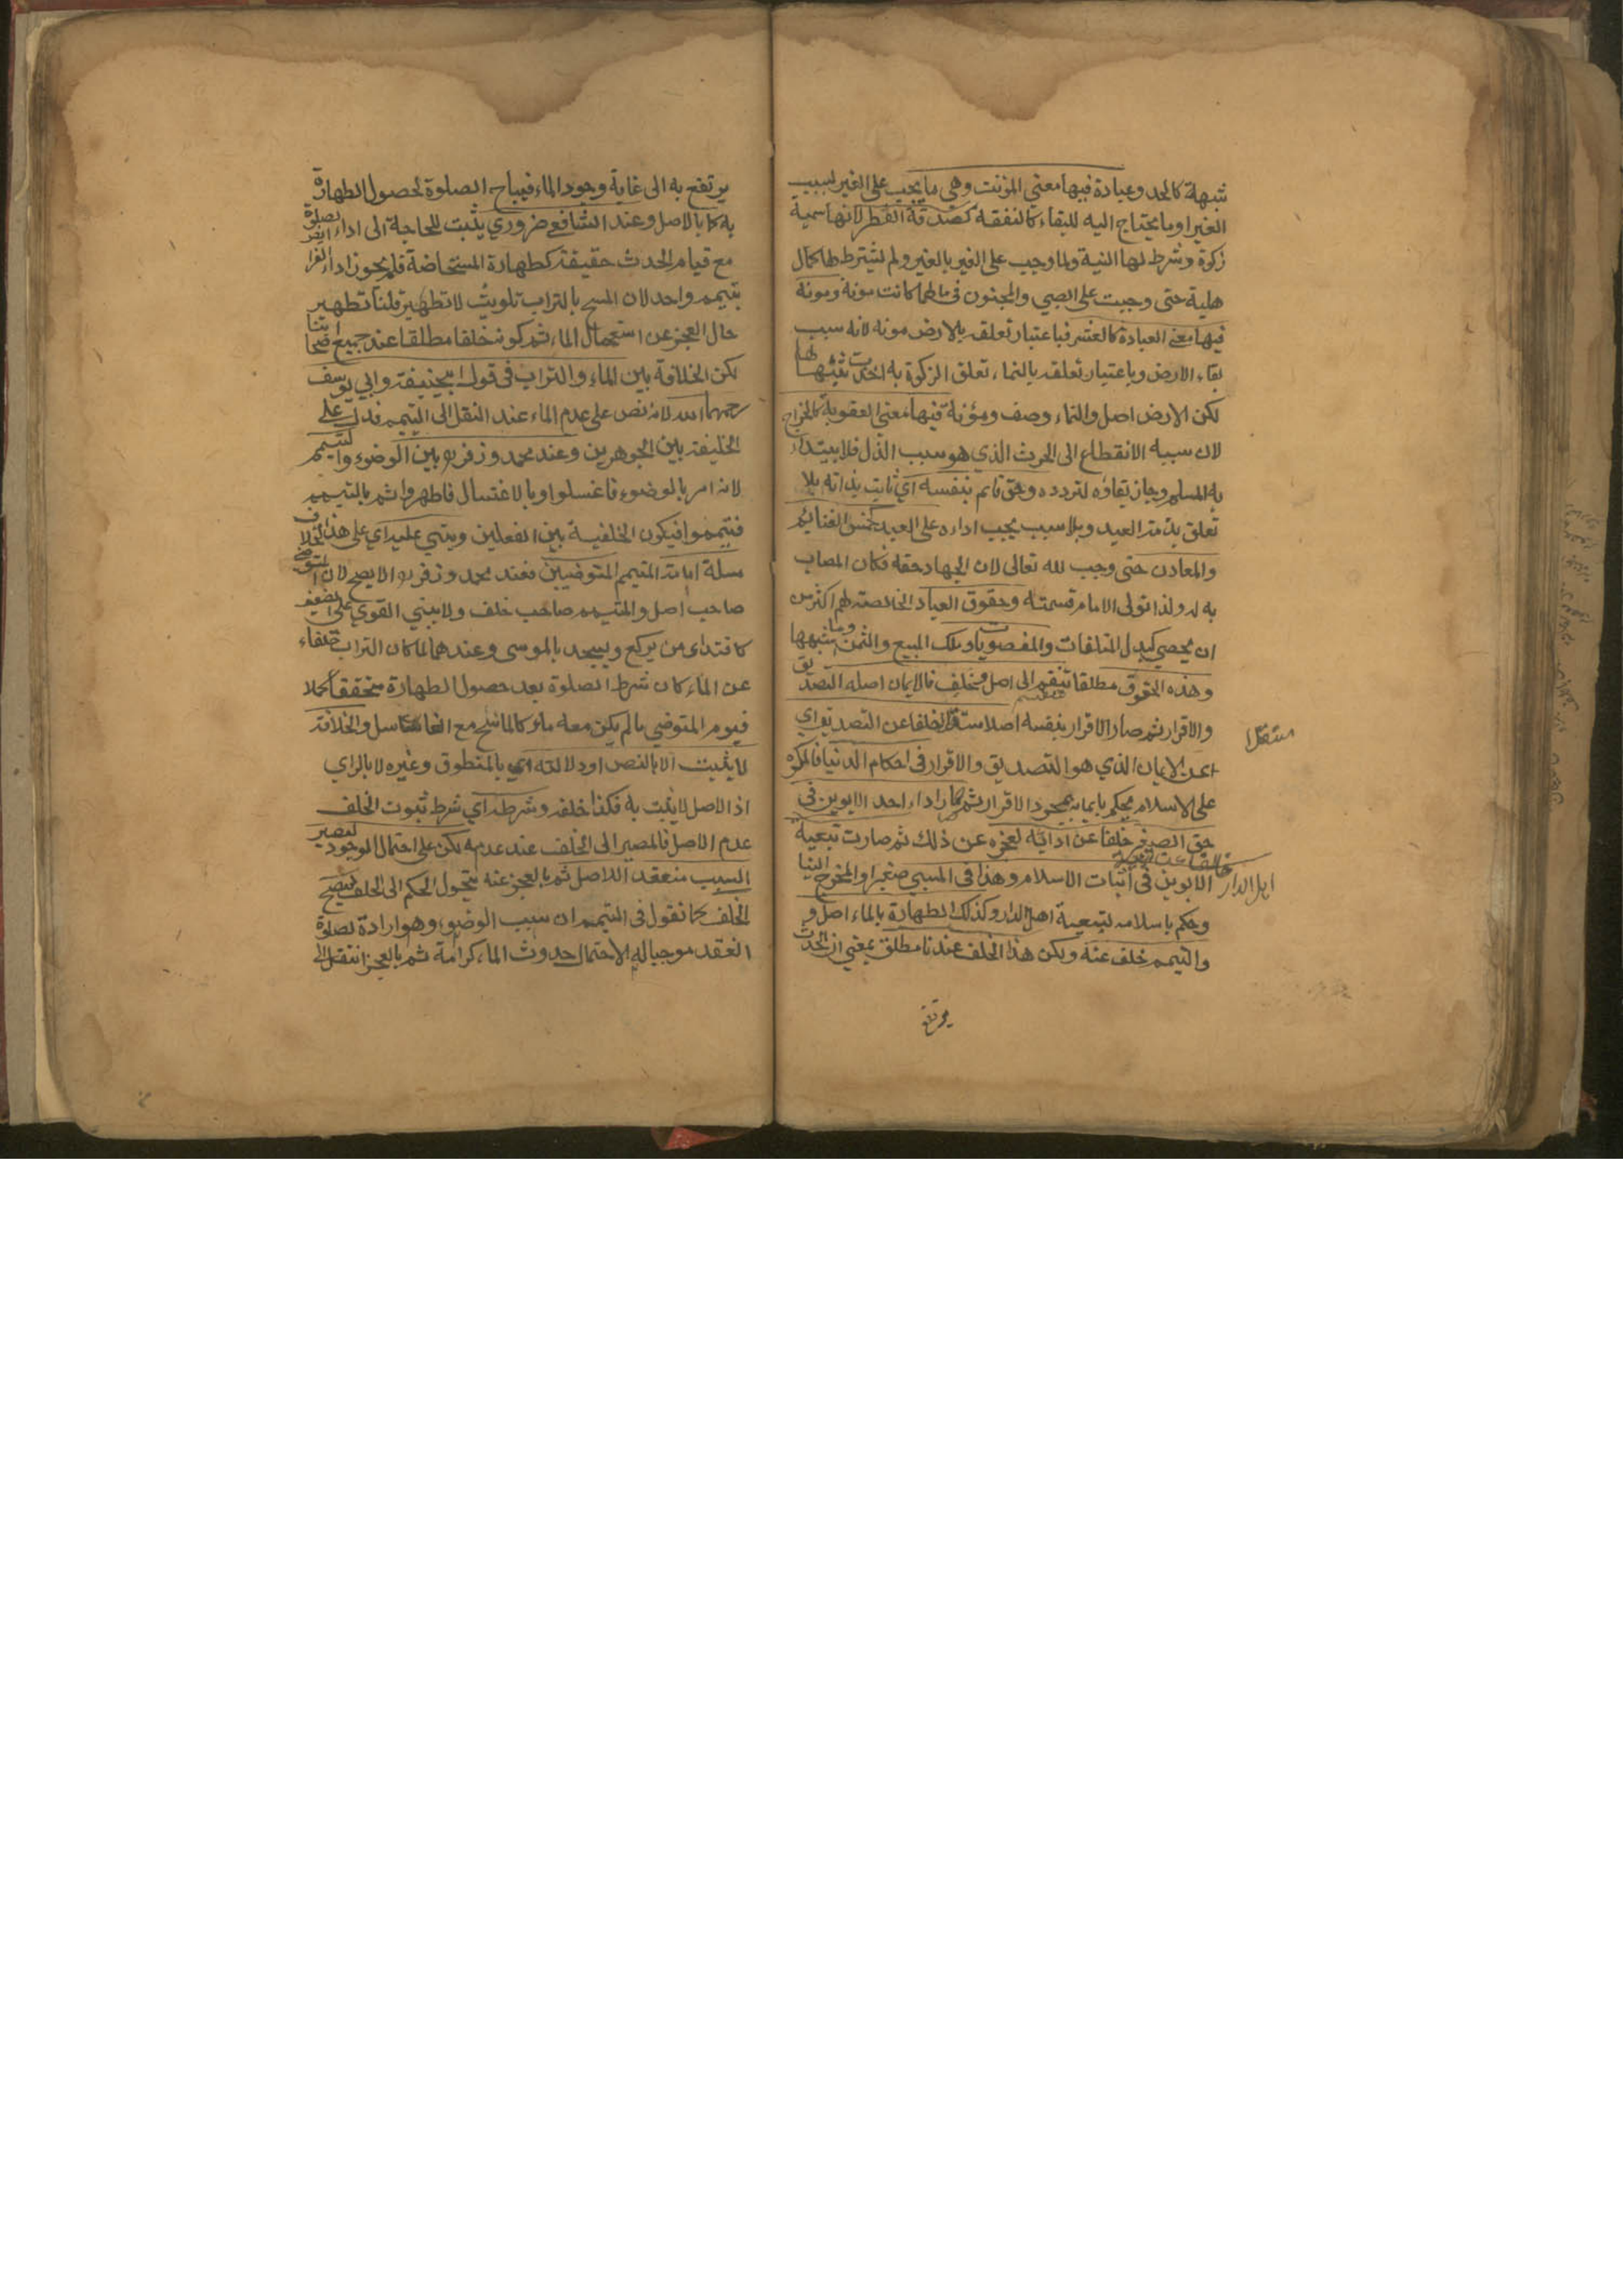 شبهة كالحد وعبادة فيها معني المؤنت وهي ما يجب على الغير لسبب
الغير او ما يحتاج اليه للبقاء كالنفقه كصدقة الفطر لانها سمية
زكوة وشرط لها النية ولما وجب على الغير بالغير ولم يشترط لها كمال
هلية حتى وجبت على الصبي والمجنون في مالهما كانت مونة ومونة
فيها معنى العبادة كالعشر فباعتبار تعلقه بالارض مونه لانه سبب
بقاء الارض وباعتبار تعلقه بالنماء تعلق الزكوة به اخذت شبها لها
لكن الارض اصل والنماء وصف ومؤنة فيها معنى العقوبة كالخراج
لان سببه الانقطاع الى الحرث الذي هو سبب الذل فلا يبتداء
به المسلم وجاز بقاؤه لتردده وحق قائم بنفسه اي ثابت بذاته بلا
تعلق بذمة العبد وبلا سبب يجب اداره على العبد كخمس الغنائم
والمعادن حتى وجب لله تعالى لان الجهاد حقه فكان المصاب
به له ولذا تولى الامام قسمته وحقوق العباد الخالصة لهم اكثر من
ان يحصي كبدل المتلفات والمغصوبات وملك المبيع والثمن وما شبهها
وهذه الحقوق مطلقا تنقسم الى اصل وخلف فالايمان اصله التصديق
والاقرار ثم صار الاقرار بنفسه اصلا مستقلا خلفا عن التصديق اي
عن الايمان الذي هو التصديق والاقرار في احكام الدنيا فالمكره
مستقلا
على الاسلام يحكم بايمانه بمجرد الاقرار ثم صار اداء احد الابوين في
حق الصغير خلفا عن ادائه لعجزه عن ذلك ثم صارت تبعية
اهل الدار خلفا عن تبعية
الابوين في اثبات الاسلام وهذا في المسبي صغيرا والمخرج الينا
وحكم باسلامه لتبعية اهل الدار وكذلك الطهارة بالماء اصل و
والتيمم خلف عنه ولكن هذا الخلف عندنا مطلق بمعني ان الحدث
يرتفع
يرتفع به الى غاية وجود الماء فيباح الصلوة لحصول الطهارة
به كما بالاصل وعند الشافعي ضروري يثبت للحاجة الى اداء الصلوة
مع قيام الحدث حقيقة كطهارة المستحاضة فلم يجوز اداء الفرا
بتيمم واحد لان المسح بالتراب تلويث لا تطهير قلنا تطهير
حال العجز عن استعمال الماء ثم كونه خلفا مطلقا عند جميع اصحابنا
لكن الخلافة بين الماء والتراب في قول ابيحنيفة وابي يوسف
رحمهما الله لانه نص على عدم الماء عند النقل الى التيمم فدل على
الخليفة بين الجوهرين وعند محمد وزفر ره بين الوضوء والتيمم
لانه امر بالوضوء فاغسلوا وبالاغتسال فاطهروا ثم بالتيمم
فتيمموا فيكون الخلفية بين الفعلين ويبتني عليه اي على هذا الخلاف
مسلة امامة المتيمم المتوضيين فعند محمد وزفر ره الا يصح لان المتوضي
صاحب اصل والمتيمم صاحب خلف ولا يبني القوي على الضعيف
كاقتداء من يركع ويسجد بالمومي وعندهما لما كان التراب خلفاء
عن الماء كان شرط الصلوة بعد حصول الطهارة متحققا كملا
فيوم المتوضي مالم يكن معه ماء كالماسح مع الغاسل والخلافة
لا يثبت الا بالنص او دلالته اي بالمنطوق وغيره لا بالراي
اذ الاصل لا يثبت به فكذا خلفه وشرطه اي شرط ثبوت الخلف
عدم الاصل فالمصير الى الخلف عند عدمه لكن على احتمال الوجود ليصير
السبب منعقدا للاصل ثم بالعجز عنه يتحول الحكم الى الخلف فيصح
الخلف كما نقول في التيمم ان سبب الوضوء وهو ارادة الصلوة
انعقد موجبا له لاحتمال حدوث الماء كرامة ثم بالعجز انتقل الى